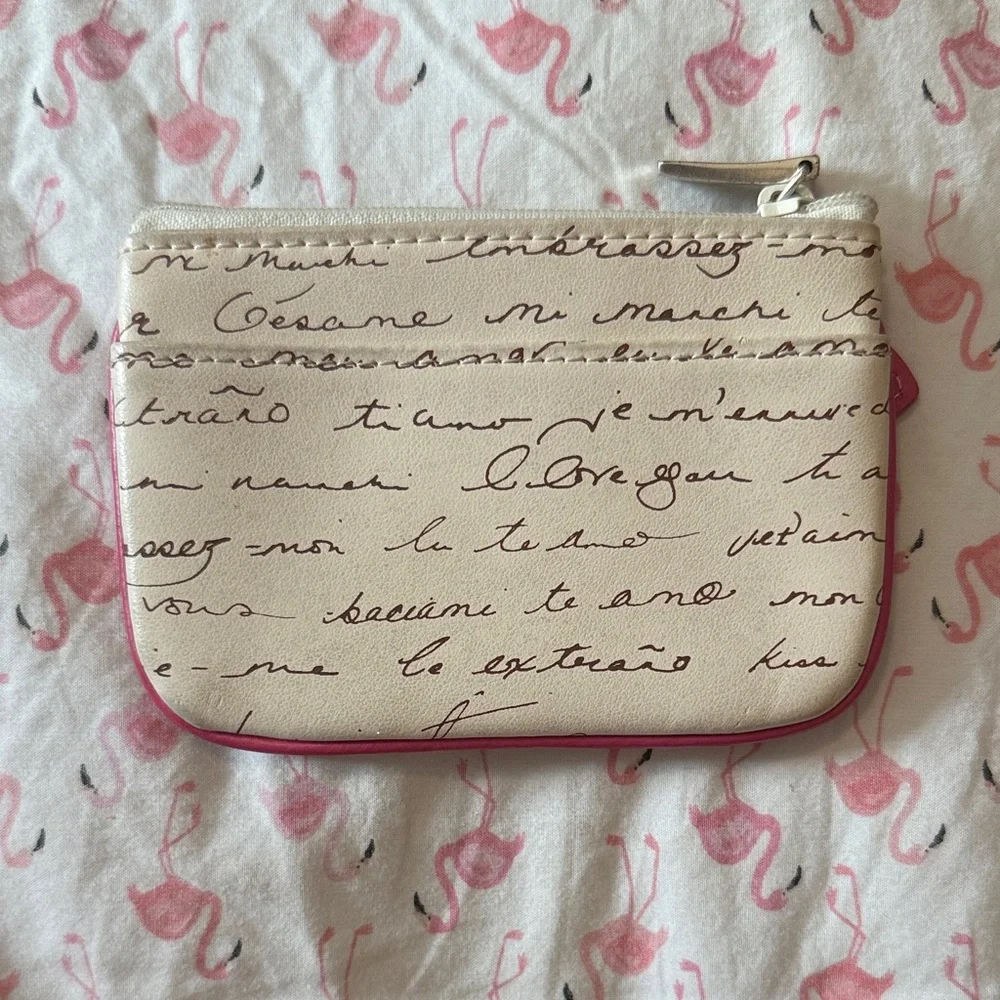 mi manchi Embrassez-mo
Césane mi manchi te
traño ti amo je m'ennuie d
mi manchi I Love you ti a
ssez-moi lu te amo jet'aim
vous baciami te amo mon
e-me le extraño kiss